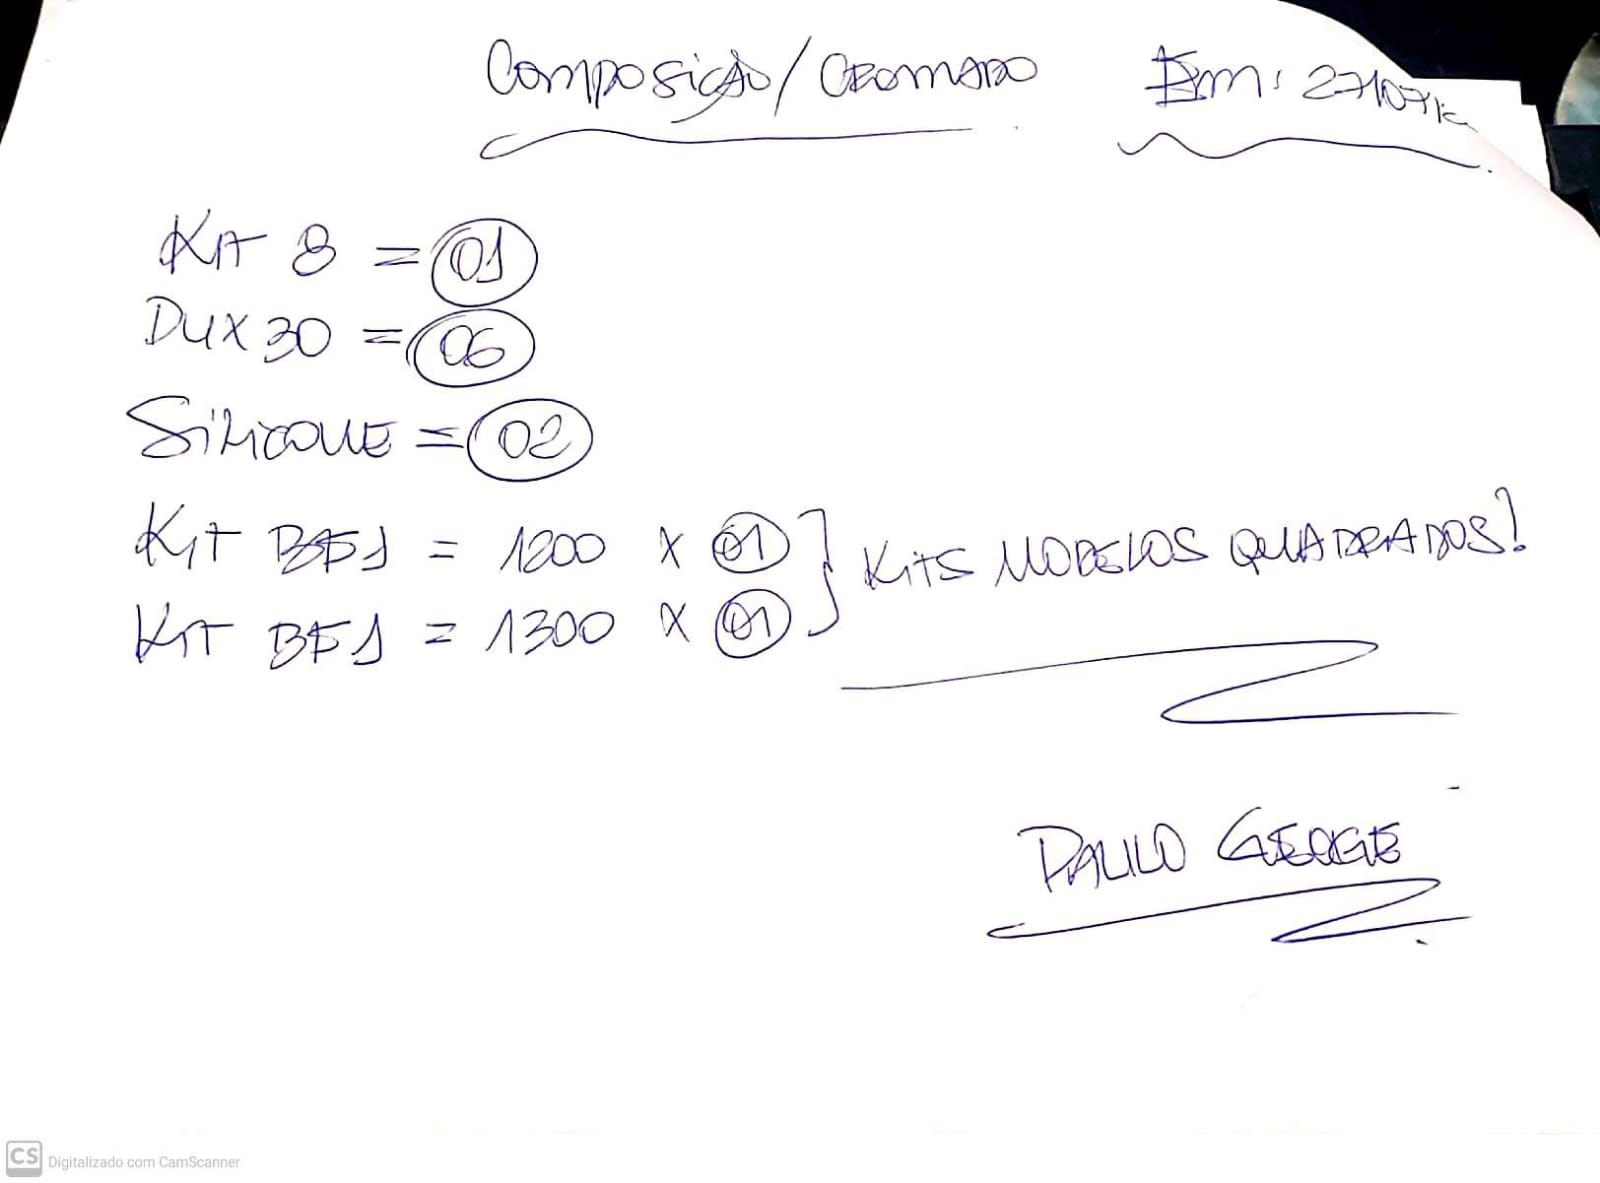 Composição/Cromado Em: 27/07/
Kit 8 = 01
Dux 30 = 06
Silicone = 02
Kit BF1 = 1200 x 01
Kit BF1 = 1300 x 01
Kits Modelos Quadrados!
Paulo George
CS Digitalizado com CamScanner